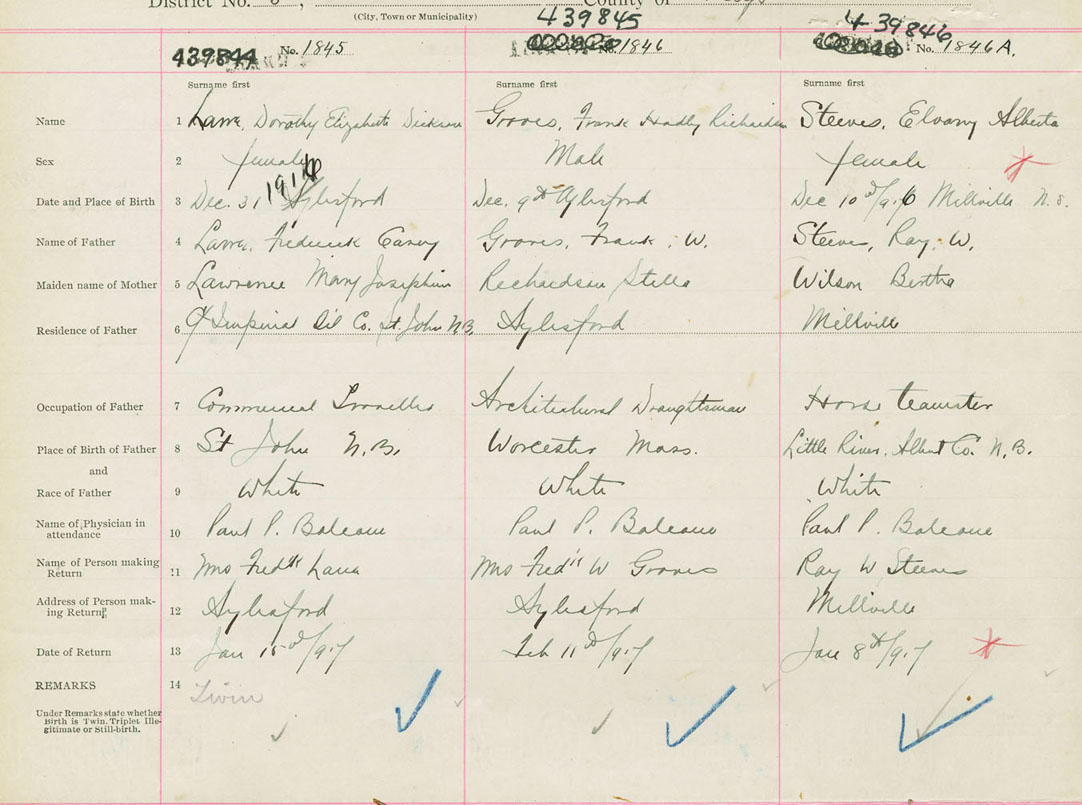 District No. 8, County of
(City, Town or Municipality)
439844 No. 1845 439845 No. 1846 439846 No. 1846 A.
Surname first Surname first Surname first
Name 1 Dorothy Elizabeth Groves, Frank Hadly Richardson Steeves, Alberta
Sex 2 female Male female
Date and Place of Birth 3 Dec. 31 1916 Aylesford Dec. 9th Aylesford Dec 10th/916 Millville N.S.
Name of Father 4 Frederick Carey Groves, Frank, W. Steeves, Ray, W.
Maiden name of Mother 5 Lawrence Mary Josephine Richardson Stella Wilson Bertha
Residence of Father 6 c/o Imperial Oil Co. St. John N.B. Aylesford Millville
Occupation of Father 7 Commercial Traveller Architectural Draughtsman Horse teamster
Place of Birth of Father 8 St John N.B. Worcester Mass. Little River, Albert Co. N.B.
and
Race of Father 9 White White White
Name of Physician in
attendance 10 Paul P. Balcom Paul P. Balcom Paul P. Balcom
Name of Person making
Return 11 Mrs Fred'k Mrs Fred'k W Groves Ray W Steeves
Address of Person mak-
ing Return 12 Aylesford Aylesford Millville
Date of Return 13 Jan 15th/917 Feb 11th/917 Jan 8th/917
REMARKS 14 Twin
Under Remarks state whether
Birth is Twin, Triplet, Ille-
gitimate or Still-birth.